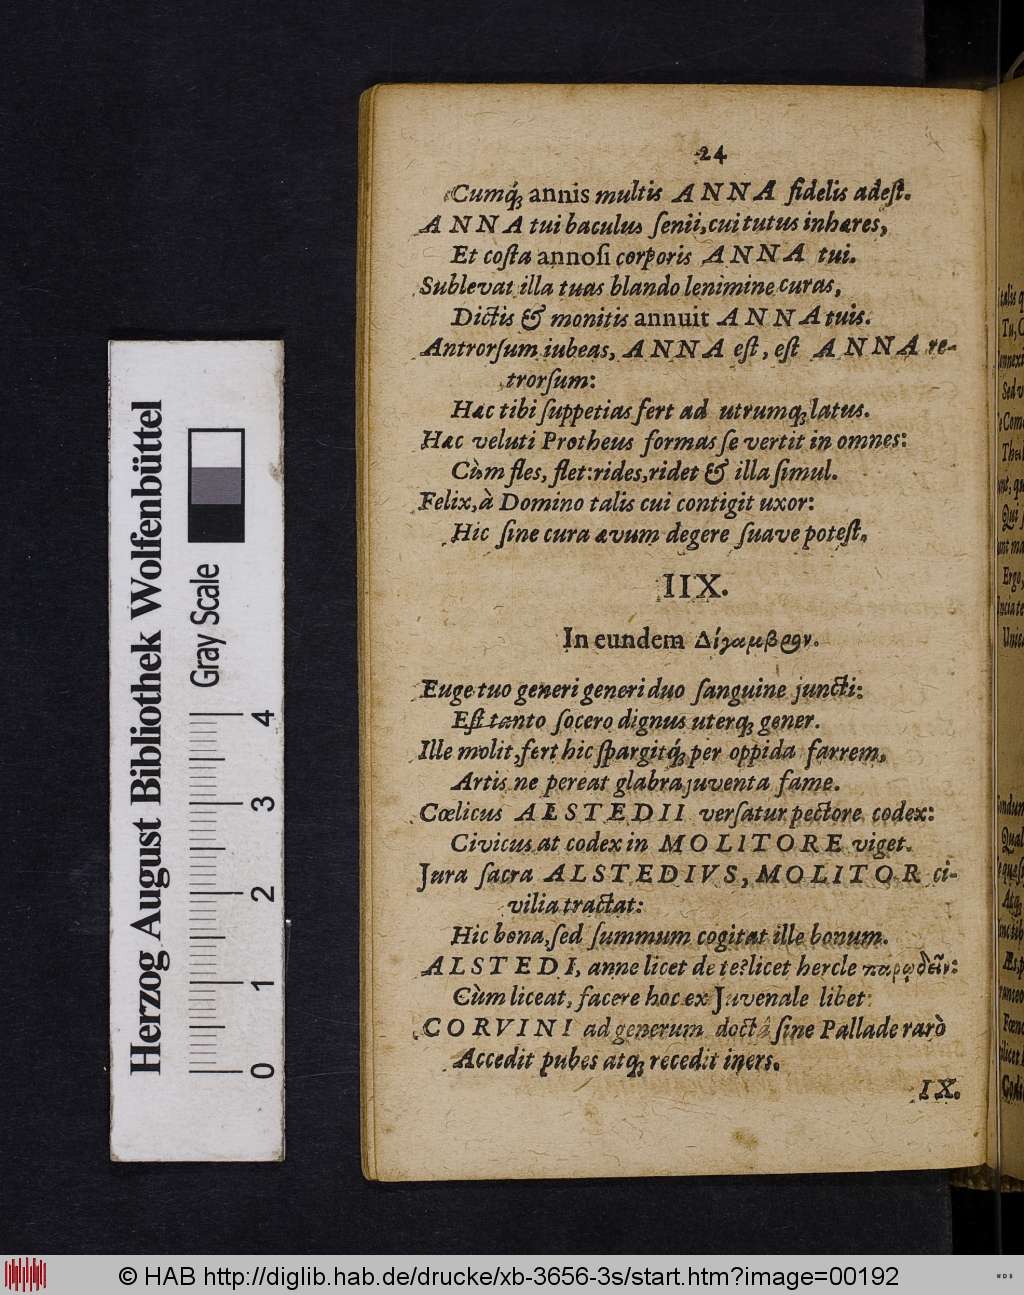 24
Cumq́; annis multis ANNA fidelis adeſt.
ANNA tui baculus ſenii, cui tutus inhæres,
Et coſta annoſi corporis ANNA tui.
Sublevat illa tuas blando lenimine curas,
Dictis & monitis annuit ANNA tuis.
Antrorſum iubeas, ANNA eſt, eſt ANNA re-
trorſum:
Hæc tibi ſuppetias fert ad utrumq; latus.
Hæc veluti Protheus formas ſe vertit in omnes:
Cùm fles, flet: rides, ridet & illa ſimul.
Felix, à Domino talis cui contigit uxor:
Hic ſine cura ævum degere ſuave poteſt,
IIX.
In eundem Δίγαμβρον.
Euge tuo generi generi duo ſanguine juncti:
Eſt tanto ſocero dignus uterq; gener.
Ille molit, fert hic ſpargitq́; per oppida farrem,
Artis ne pereat glabra juventa fame.
Cœlicus ALSTEDII verſatur pectore codex:
Civicus at codex in MOLITORE viget.
Jura ſacra ALSTEDIVS, MOLITOR ci-
vilia tractat:
Hic bona, ſed ſummum cogitat ille bonum.
ALSTEDI, anne licet de te? licet hercle παρῳδεῖν:
Cùm liceat, facere hoc ex Juvenale libet:
CORVINI ad generum doctâ ſine Pallade rarò
Accedit pubes atq; recedit iners.
IX.
Herzog August Bibliothek Wolfenbüttel
Gray Scale
0 1 2 3 4
© HAB http://diglib.hab.de/drucke/xb-3656-3s/start.htm?image=00192